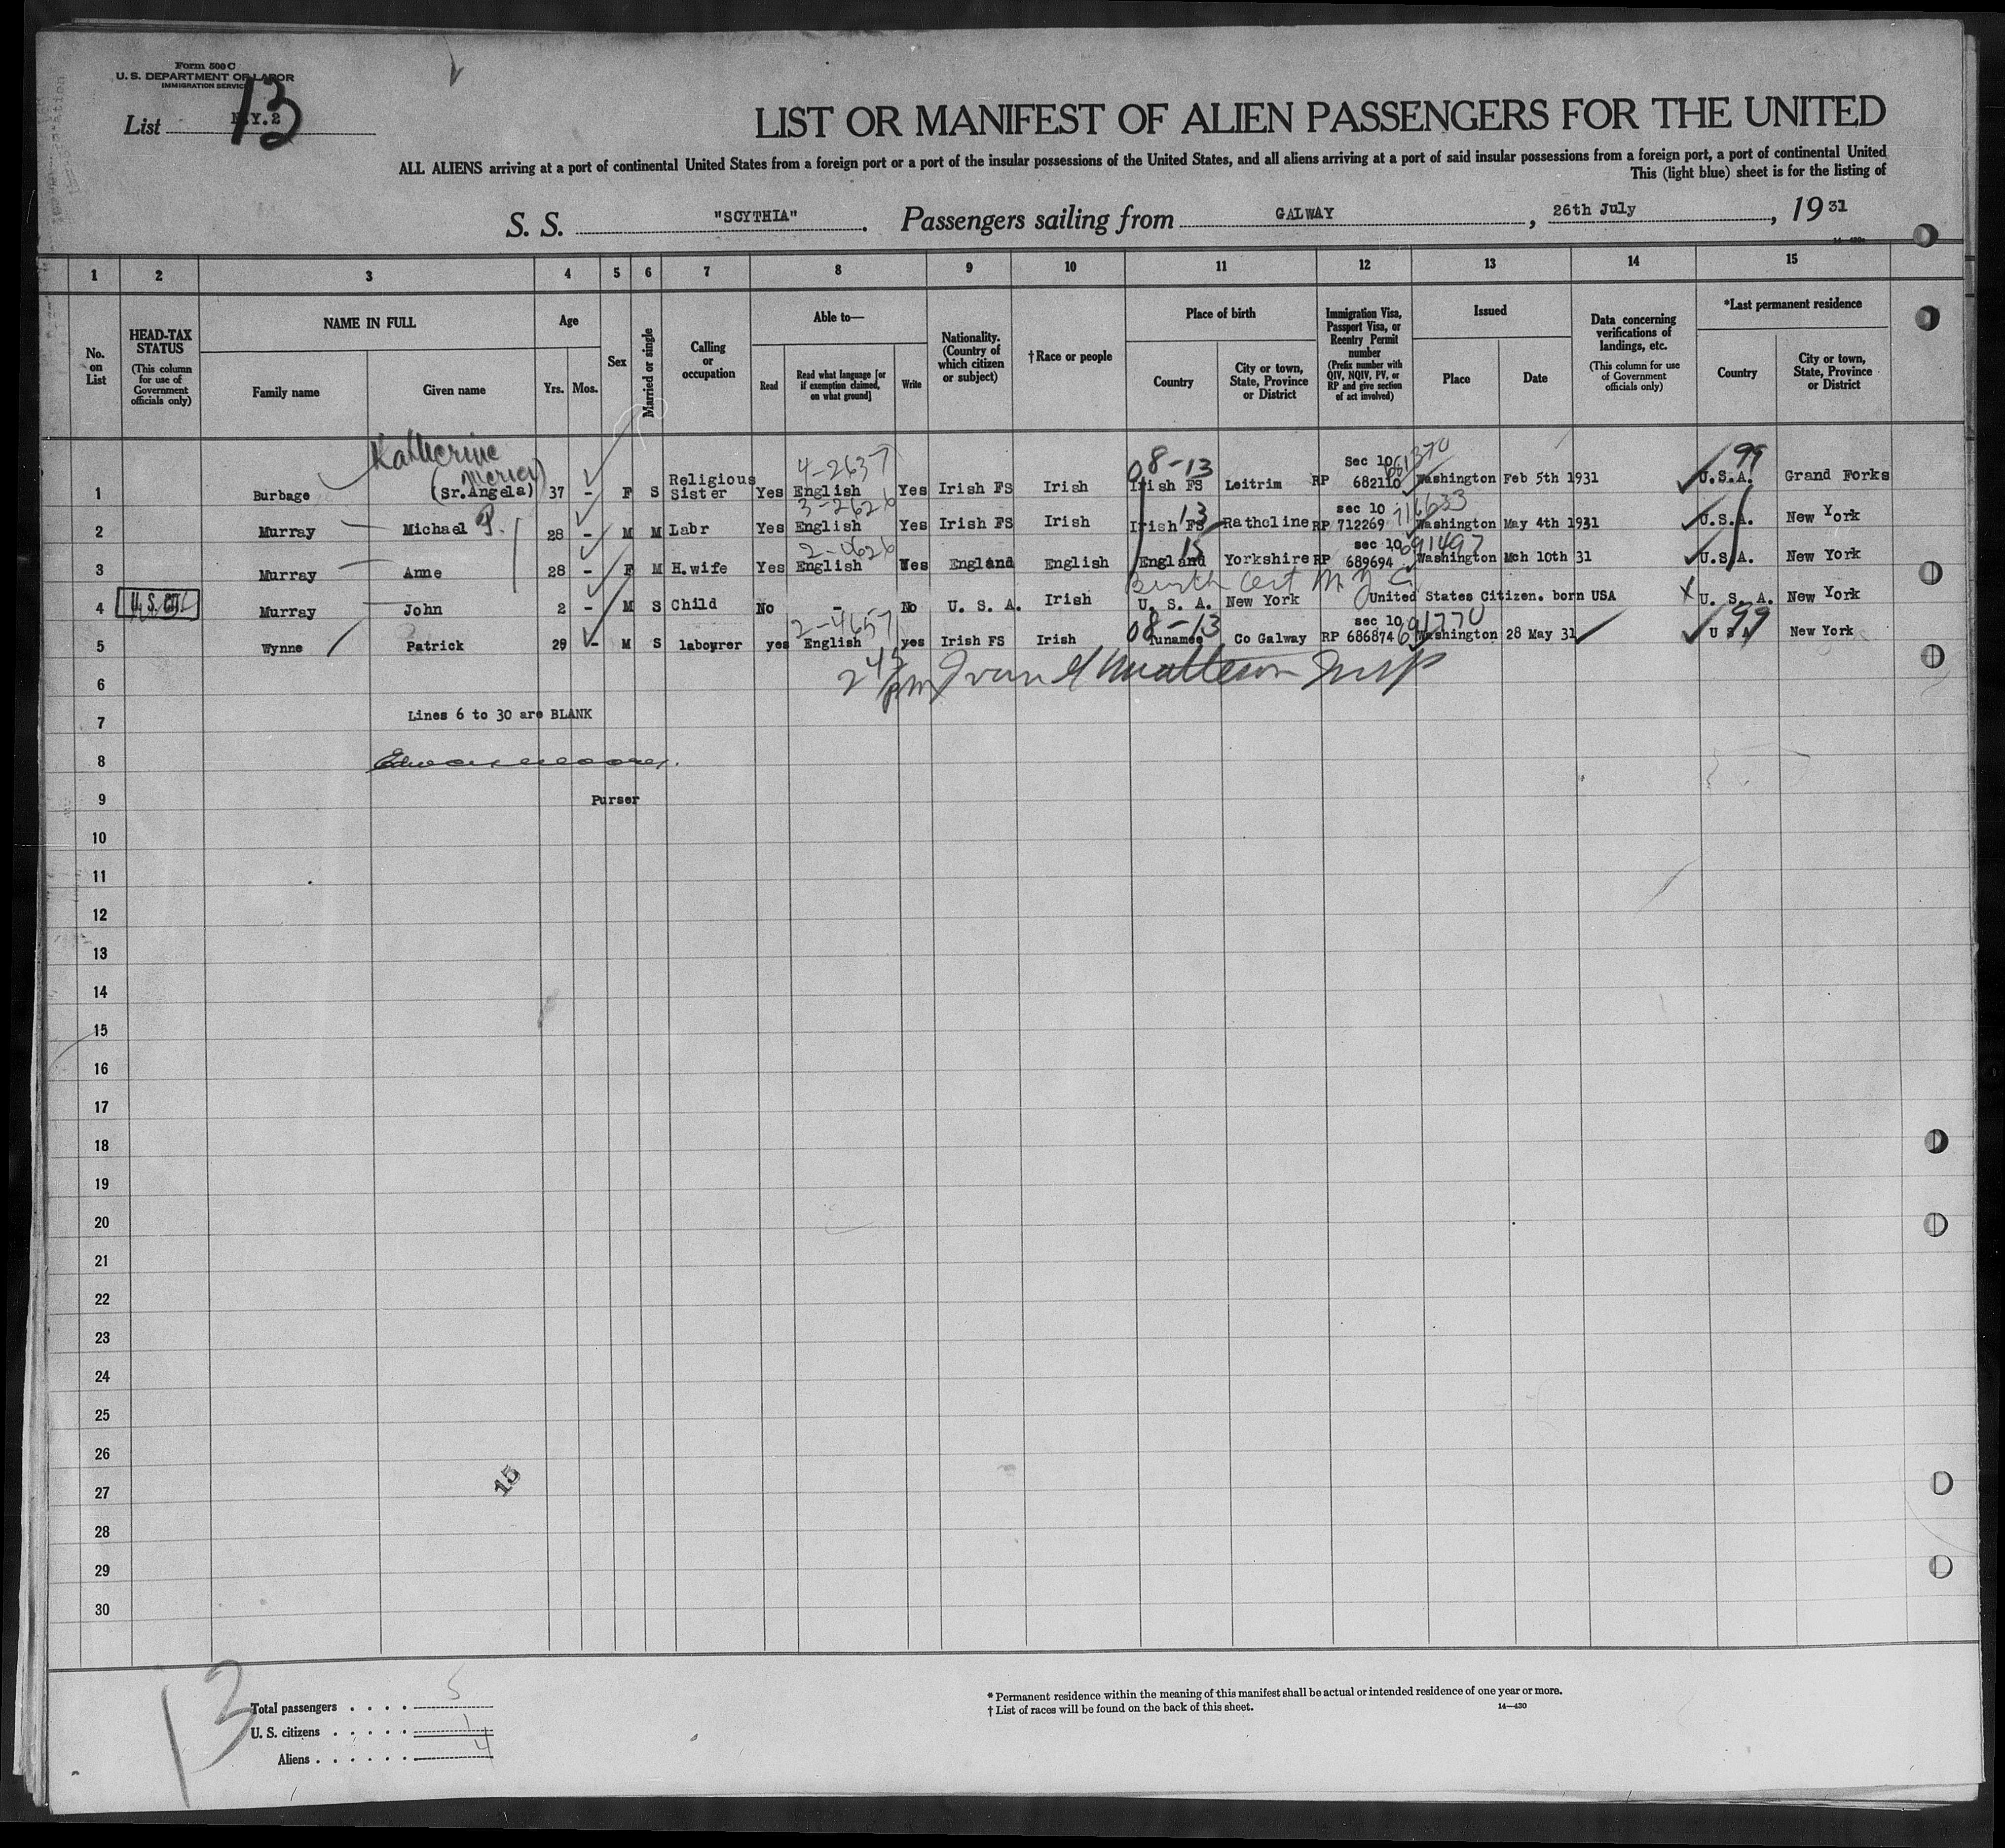 Form 500 C
U. S. DEPARTMENT OF LABOR
IMMIGRATION SERVICE
List N.Y.2
13
LIST OR MANIFEST OF ALIEN PASSENGERS FOR THE UNITED
ALL ALIENS arriving at a port of continental United States from a foreign port or a port of the insular possessions of the United States, and all aliens arriving at a port of said insular possessions from a foreign port, a port of continental United
This (light blue) sheet is for the listing of
S. S. "SCYTHIA". Passengers sailing from GALWAY, 26th July, 1931
14—430
1 2 3 4 5 6 7 8 9 10 11 12 13 14 15
No. on List
HEAD-TAX STATUS (This column for use of Government officials only)
NAME IN FULL Family name Given name
Age Yrs. Mos.
Sex
Married or single
Calling or occupation
Able to— Read Read what language [or if exemption claimed, on what ground] Write
Nationality. (Country of which citizen or subject)
†Race or people
Place of birth Country City or town, State, Province or District
Immigration Visa, Passport Visa, or Reentry Permit number (Prefix number with QIV, NQIV, PV, or RP and give section of act involved)
Issued Place Date
Data concerning verifications of landings, etc. (This column for use of Government officials only)
*Last permanent residence Country City or town, State, Province or District
Katherine
4-2637 08-13 Sec 10 661370 99
1 Burbage (Sr. Angela) 37 - F S Religious Sister Yes English Yes Irish FS Irish Irish FS Leitrim RP 682110 Washington Feb 5th 1931 U.S.A. Grand Forks
3-2626 13 sec 10 716633
2 Murray Michael P. 28 - M M Labr Yes English Yes Irish FS Irish Irish FS Rathcline RP 712269 Washington May 4th 1931 U.S.A. New York
2-4626 15 sec 10 691497
3 Murray Anne 28 - F M H.wife Yes English Yes England English England Yorkshire RP 689694 Washington Mch 10th 31 U.S.A. New York
Birth Cert
4 U.S. Murray John 2 - M S Child No - No U. S. A. Irish U. S. A. New York United States Citizen. born USA U. S. A. New York
2-4657 08-13 sec 10 691770 99
5 Wynne Patrick 29 - M S labourer yes English yes Irish FS Irish Co Galway RP 686874 Washington 28 May 31 U S A New York
6
7 Lines 6 to 30 are BLANK
8
9 Purser
10
11
12
13
14
15
16
17
18
19
20
21
22
23
24
25
26
27 15
28
29
30
13
Total passengers . . . . 5
U. S. citizens . . . . . 1
Aliens . . . . . . 4
* Permanent residence within the meaning of this manifest shall be actual or intended residence of one year or more.
† List of races will be found on the back of this sheet.
14—430